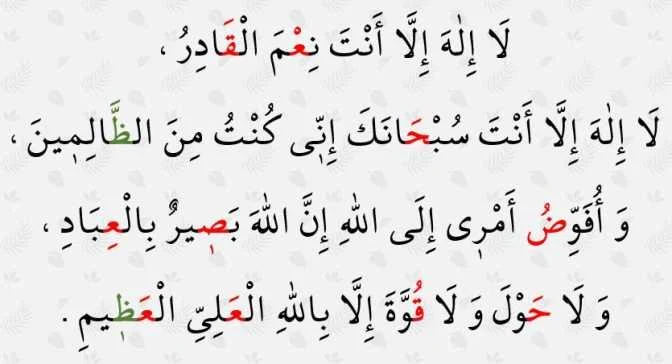 لَا إِلٰهَ إِلَّا أَنْتَ نِعْمَ الْقَادِرُ ،
لَا إِلٰهَ إِلَّا أَنْتَ سُبْحَانَكَ إِنّٖى كُنْتُ مِنَ الظَّالِمٖينَ ،
وَ أُفَوِّضُ أَمْرٖى إِلَى اللهِ إِنَّ اللهَ بَصٖيرٌ بِالْعِبَادِ ،
وَ لَا حَوْلَ وَ لَا قُوَّةَ إِلَّا بِاللهِ الْعَلِىِّ الْعَظٖيمِ .